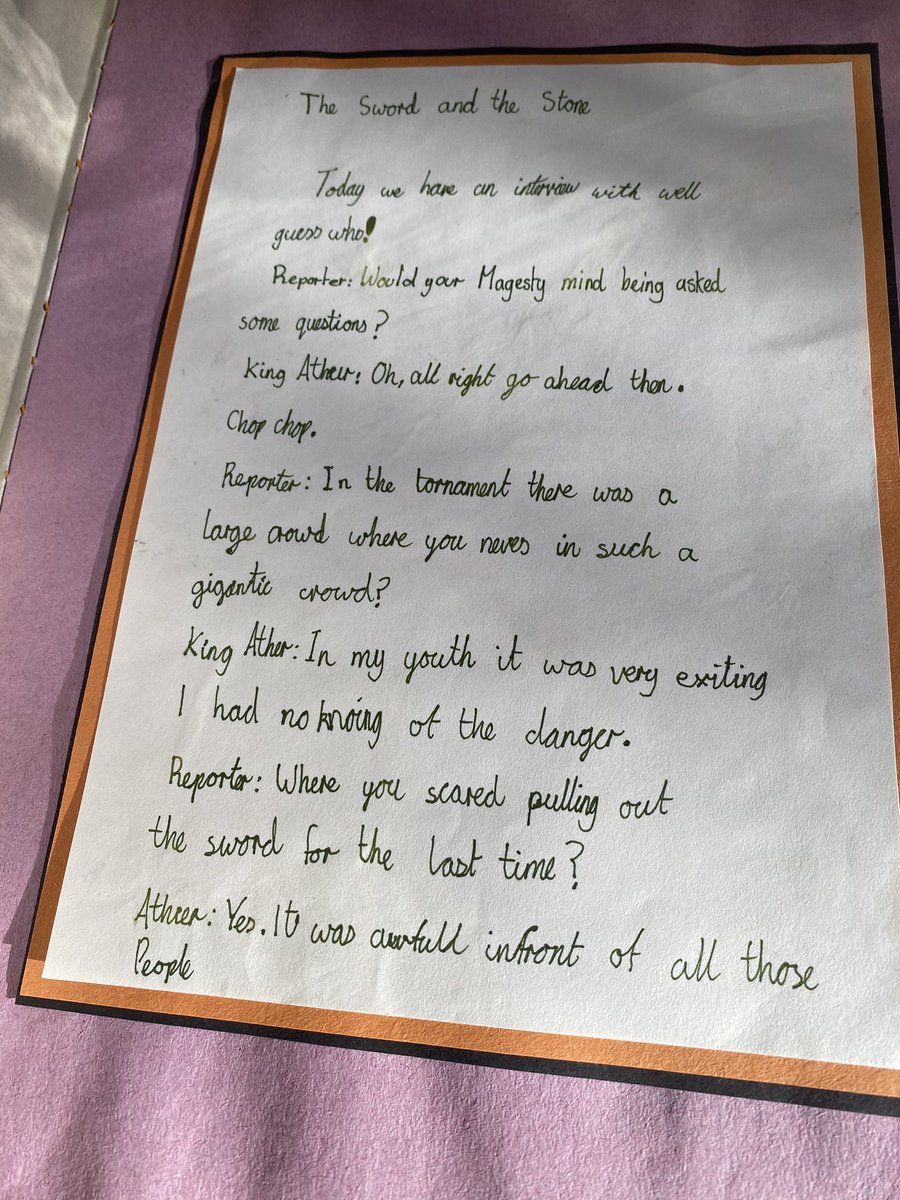 The Sword and the Stone
Today we have an interview with well
guess who!
Reporter: Would your Magesty mind being asked
some questions?
King Atheur: Oh, all right go ahead then.
Chop chop.
Reporter: In the tornament there was a
large crowd where you neves in such a
gigantic crowd?
King Ather: In my youth it was very exiting
I had no knoing of the danger.
Reporter: Where you scared pulling out
the sword for the last time?
Atheer: Yes. It was awfull infront of all those
People